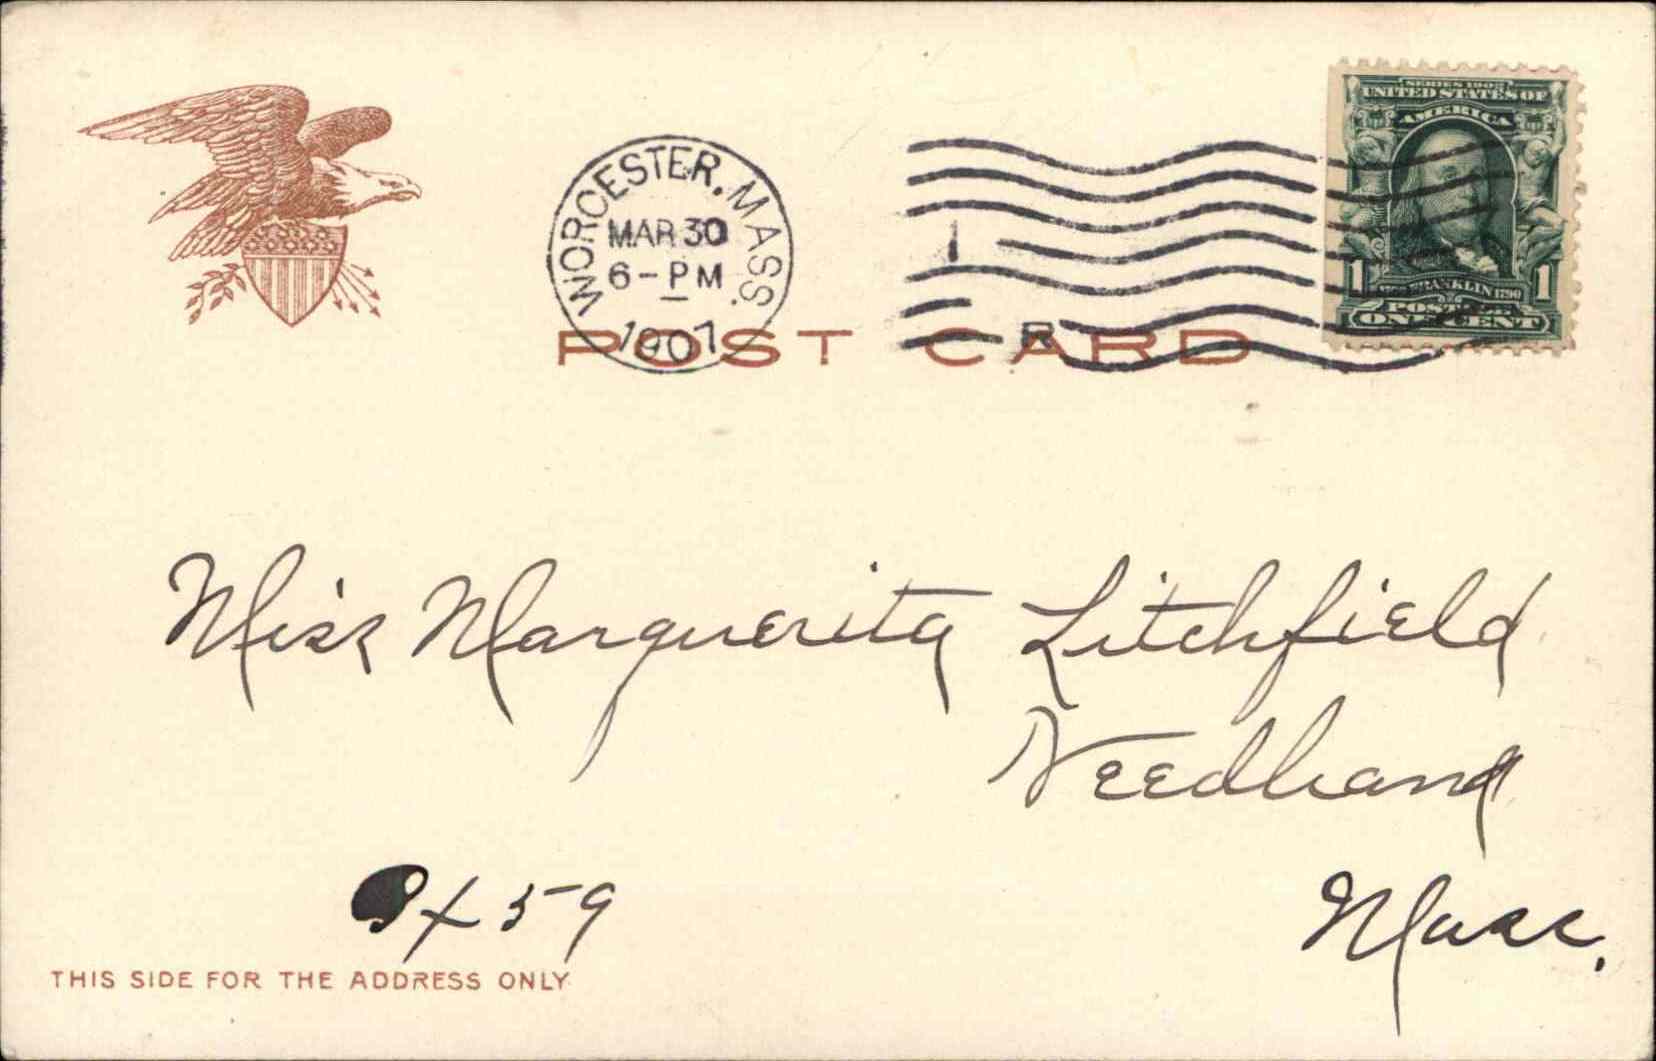 WORCESTER, MASS.
MAR 30
6-PM
1907
SERIES 1902
UNITED STATES OF
AMERICA
1 FRANKLIN 1790 1
POSTAGE
ONE CENT
POST CARD
Miss Marguerita Litchfield
Needham
Mass.
59
THIS SIDE FOR THE ADDRESS ONLY.